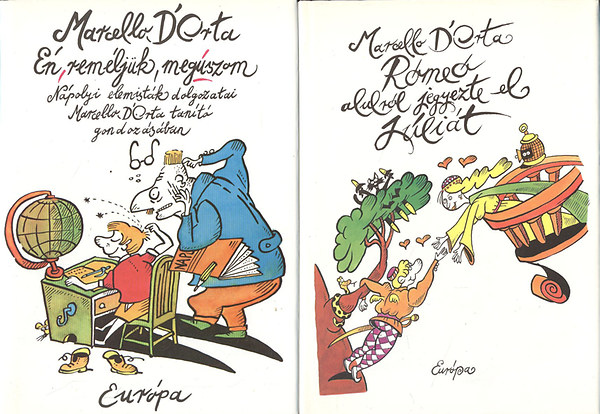 Marcello D'Orta
Én, reméljük, megúszom
Nápolyi elemisták dolgozatai
Marcello D'Orta tanító
gondozásában
NAP
Európa
Marcello D'Orta
Rómeó
alulról jegyezte el
Júliát
Európa